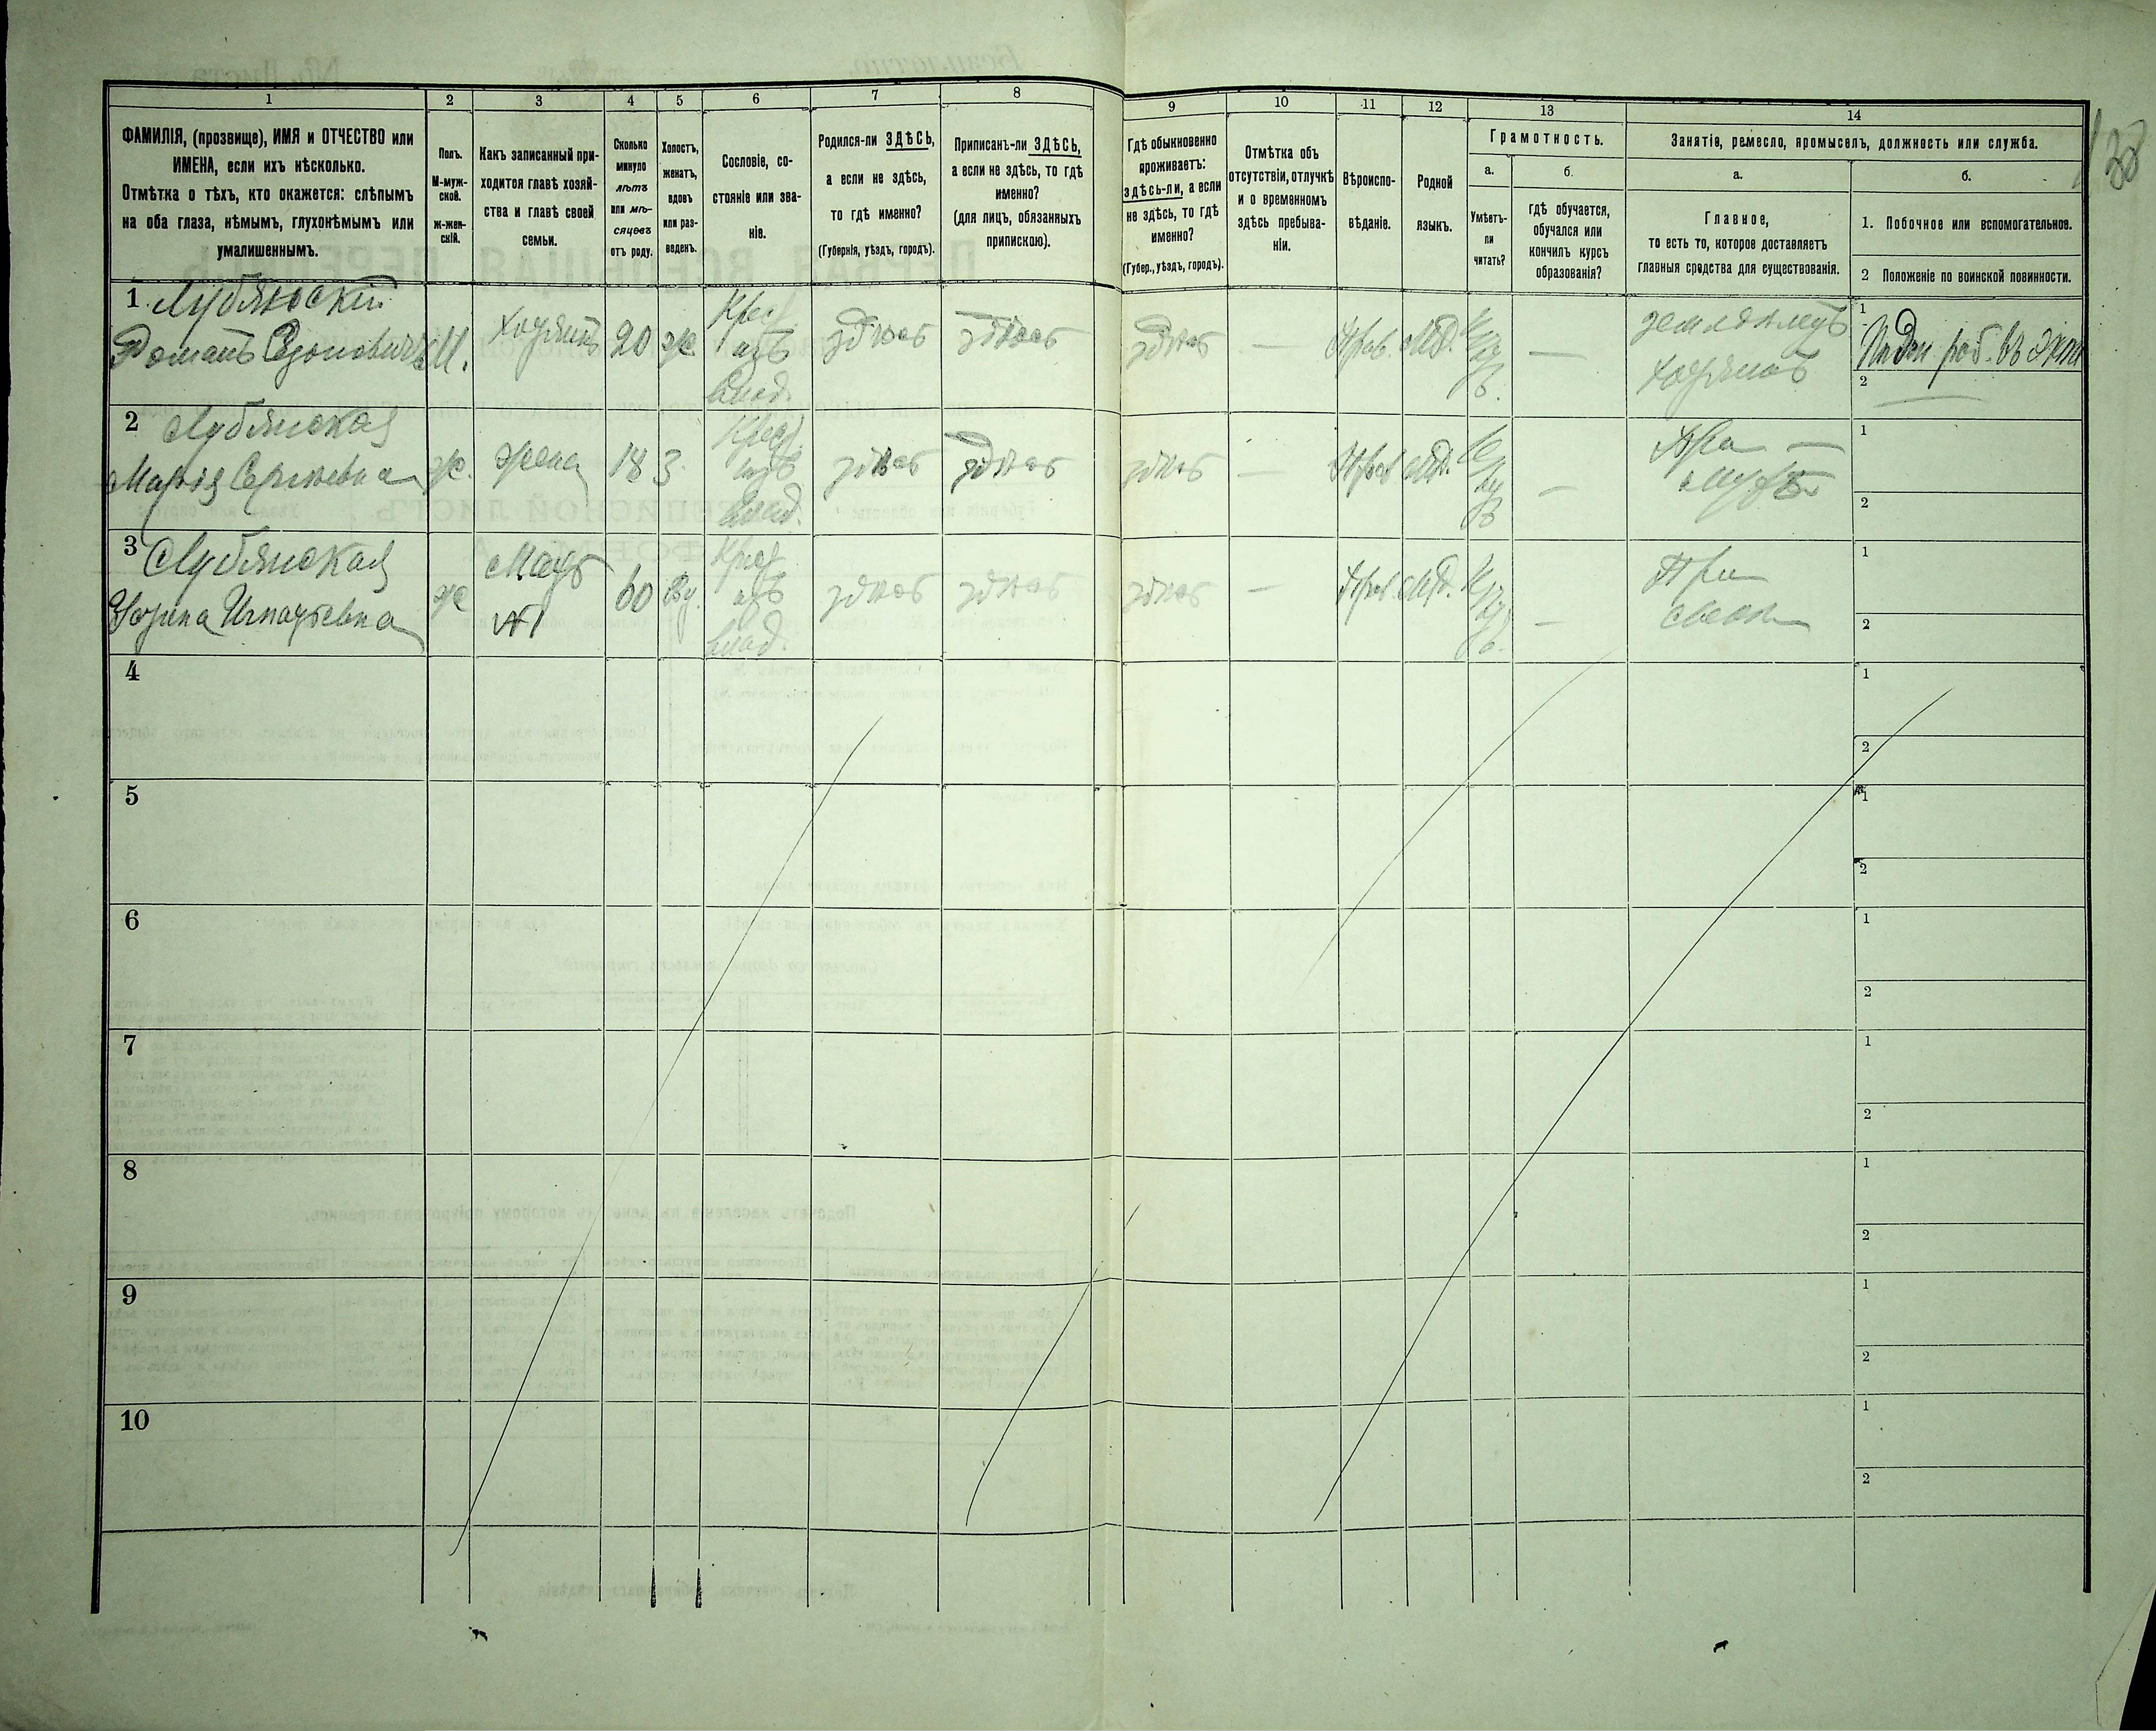 1 2 3 4 5 6 7 8 9 10 11 12 13 14
ФАМИЛІЯ, (прозвище), ИМЯ и ОТЧЕСТВО или
ИМЕНА, если ихъ нѣсколько.
Отмѣтка о тѣхъ, кто окажется: слѣпымъ
на оба глаза, нѣмымъ, глухонѣмымъ или
умалишеннымъ.
Полъ.
М-муж-
ской.
ж-жен-
скій.
Какъ записанный при-
ходится главѣ хозяй-
ства и главѣ своей
семьи.
Сколько
минуло
лѣтъ
или мѣ-
сяцевъ
отъ роду.
Холостъ,
женатъ,
вдовъ
или раз-
веденъ.
Сословіе, со-
стояніе или зва-
ніе.
Родился-ли ЗДѢСЬ,
а если не здѣсь,
то гдѣ именно?
(Губернія, уѣздъ, городъ).
Приписанъ-ли ЗДѢСЬ,
а если не здѣсь, то гдѣ
именно?
(для лицъ, обязанныхъ
припискою).
Гдѣ обыкновенно
проживаетъ:
здѣсь-ли, а если
не здѣсь, то гдѣ
именно?
(Губер., уѣздъ, городъ).
Отмѣтка объ
отсутствіи, отлучкѣ
и о временномъ
здѣсь пребыва-
ніи.
Вѣроиспо-
вѣданіе.
Родной
языкъ.
Грамотность.
а.
Умѣетъ-
ли
читать?
б.
гдѣ обучается,
обучался или
кончилъ курсъ
образованія?
Занятіе, ремесло, промыселъ, должность или служба.
а.
Главное,
то есть то, которое доставляетъ
главныя средства для существованія.
б.
1. Побочное или вспомогательное.
2 Положеніе по воинской повинности.
1 Лублянскій
Романъ
М.
Хозяинъ
20
ж
Крест.
изъ
влад.
здѣсь
здѣсь
здѣсь
—
Прав.
Мд.
—
Хозяинъ
1
2
2 Лублянская
Марія Сергѣевна
ж.
жена
18
З.
Крест.
изъ
влад.
здѣсь
здѣсь
здѣсь
—
Прав.
Мд.
—
При
мужѣ
1
2
3 Лублянская
Игнатьевна
ж
Мать
№1
60
Крест.
изъ
влад.
здѣсь
здѣсь
здѣсь
—
Прав.
Мд.
—
При
сынѣ
1
2
4
1
2
5
1
2
6
1
2
7
1
2
8
1
2
9
1
2
10
1
2